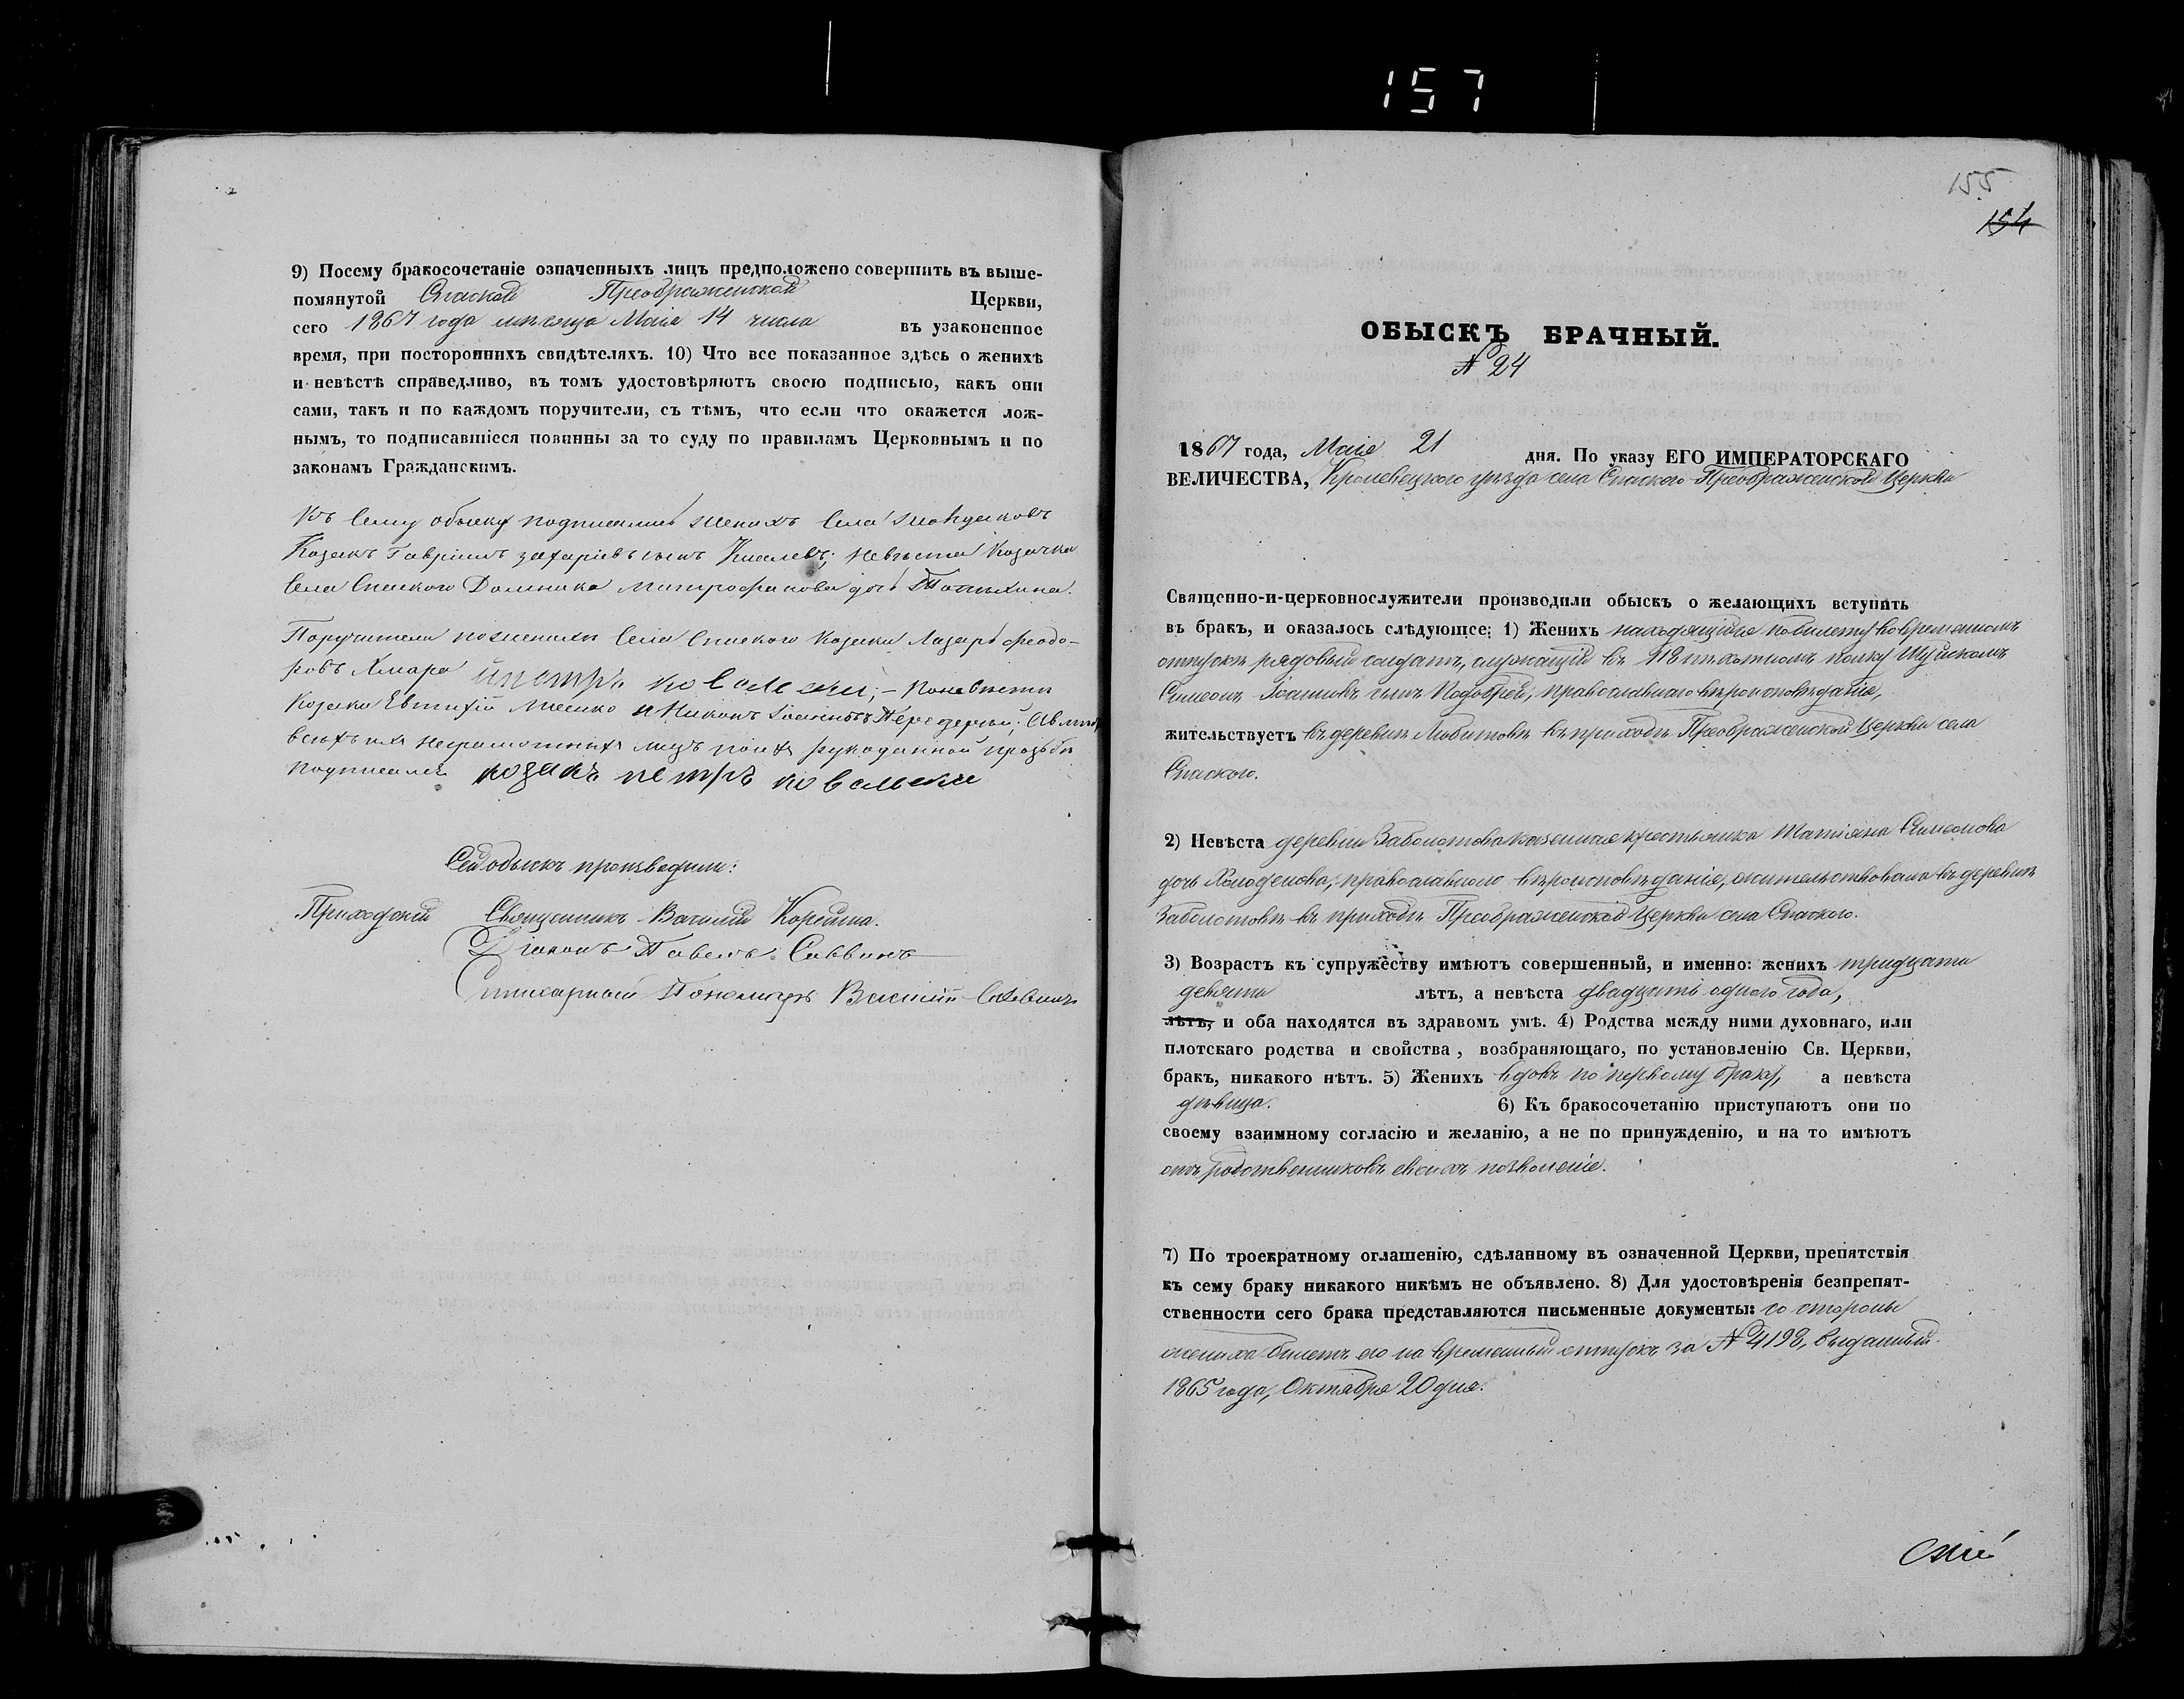 157
9) Посему бракосочетаніе означенныхъ лицъ предположено совершить въ выше-
помянутой Спаской Преображенской Церкви,
сего 1867 года мѣсяца Маія 14 числа въ узаконенное
время, при постороннихъ свидѣтеляхъ. 10) Что все показанное здѣсь о женихѣ
и невѣстѣ справедливо, въ томъ удостовѣряютъ своею подписью, какъ они
сами, такъ и по каждомъ поручители, съ тѣмъ, что если что окажется лож-
нымъ, то подписавшіеся повинны за то суду по правиламъ Церковнымъ и по
законамъ Гражданскимъ.
Къ сему обыску подписались женихъ села
Козакъ Гавріилъ Захаріевъ сынъ невѣста Козачка
села Спаского Домника Митрофанова дочь
Поручители по женихѣ села Спаского козаки Лазарь Феодо-
ровъ Хмара ипетръ ковалески; – по невѣсте
козаки Евтихій и Никонъ
всѣхъ ихъ неграмотныхъ лицъ рукоданной прозьбѣ
подписалъ козакъ петръ ковалски
Сей обыскъ производили:
Приходскій Священникъ Василій Корейша.
Діаконъ Павелъ Саввинъ
Пономарь Василій
155
154
ОБЫСКЪ БРАЧНЫЙ.
№ 24
1867 года, Маія 21 дня. По указу ЕГО ИМПЕРАТОРСКАГО
ВЕЛИЧЕСТВА, Кролевецкого уѣзда села Спаского Преображенской Церкви
Священно-и-церковнослужители производили обыскъ о желающихъ вступить
въ бракъ, и оказалось слѣдующее: 1) Женихъ находящійся по билету во временномъ
отпуску рядовый солдатъ, служащій въ 118 пѣхотномъ полку Шуйскомъ
Симеонъ Іоанновъ сынъ православнаго вѣроисповѣданія,
жительствуетъ въ деревнѣ Любитовѣ въ приходѣ Преображенской Церкви села
Спаского.
2) Невѣста деревни Заболотова казенная крестьянка Татіана Симеонова
дочь Холоденова, православнаго вѣроисповѣданія, жительствовала въ деревнѣ
Заболотовѣ въ приходѣ Преображенской Церкви села Спаского.
3) Возрастъ къ супружеству имѣютъ совершенный, и именно: женихъ тридцати
девяти лѣтъ, а невѣста двадцать одного года,
лѣтъ, и оба находятся въ здравомъ умѣ. 4) Родства между ними духовнаго, или
плотскаго родства и свойства, возбраняющаго, по установленію Св. Церкви,
бракъ, никакого нѣтъ. 5) Женихъ вдовъ по первому браку, а невѣста
дѣвица. 6) Къ бракосочетанію приступаютъ они по
своему взаимному согласію и желанію, а не по принужденію, и на то имѣютъ
отъ родственниковъ своихъ позволеніе.
7) По троекратному оглашенію, сдѣланному въ означенной Церкви, препятствія
къ сему браку никакого никѣмъ не объявлено. 8) Для удостовѣренія безпрепят-
ственности сего брака представляются письменные документы: со стороны
жениха билетъ его на временный отпускъ за № 4198, выданный
1865 года, Октября 20 дня.